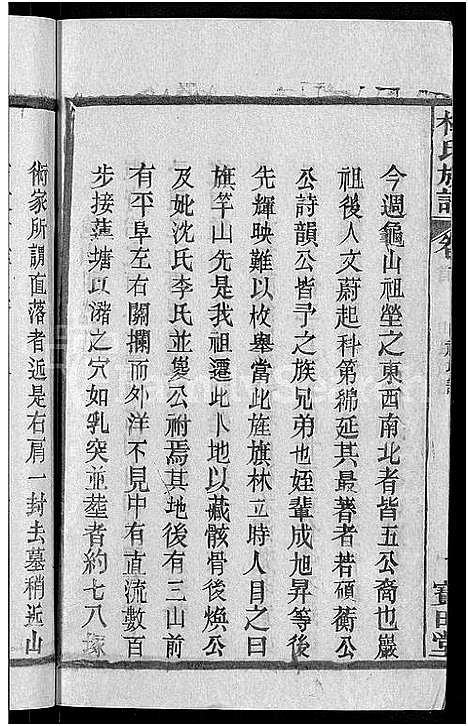 氏族譜
寶田堂
今週龜山祖塋之東西南北者皆五公裔也巖
祖後人文蔚起科第綿延其最著者若碩衡公
公詩韻公皆予之族兄弟也姪輩成旭昇等後
先輝映難以枚舉當此旌旗林立時人目之曰
旗竿山先是我祖遷此卜地以藏骸骨後煥公
及妣沈氏李氏並㚇公祔焉其地後有三山前
有平阜左右關攔而外洋不見中有直流數百
步接蓮塘以瀦之穴如乳突並塟者約七八塚
術家所謂直落者近是右肩一封去墓稍近山